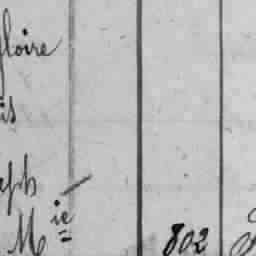 gloire
is
eph
M^ie 802